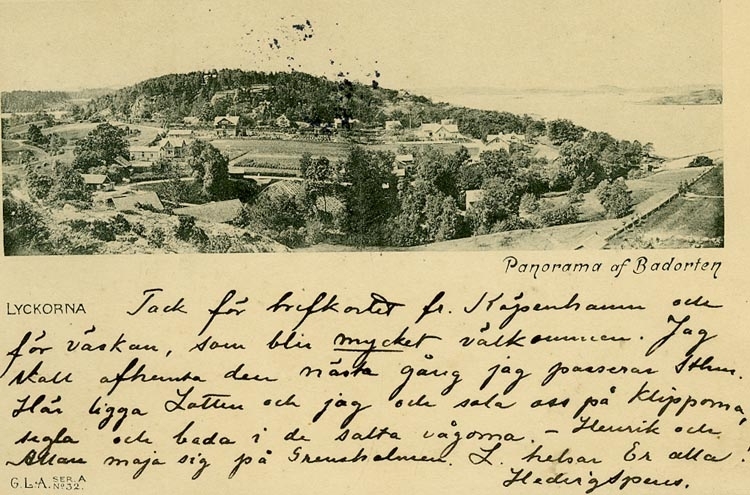 Panorama af Badorten
LYCKORNA Tack för brefkortet fr. Köpenhamn och
för väskan, som blir mycket välkommen. Jag
skall afhemta den nästa gång jag passerar Sthm.
Här ligga Lotten och jag och sola oss på klipporna,
segla och bada i de salta vågorna. – Henrik och
Allan maja sig på Grensholmen. L. helsar Er alla!
G.L.A. SER. A No 32. Hedvig Spens.